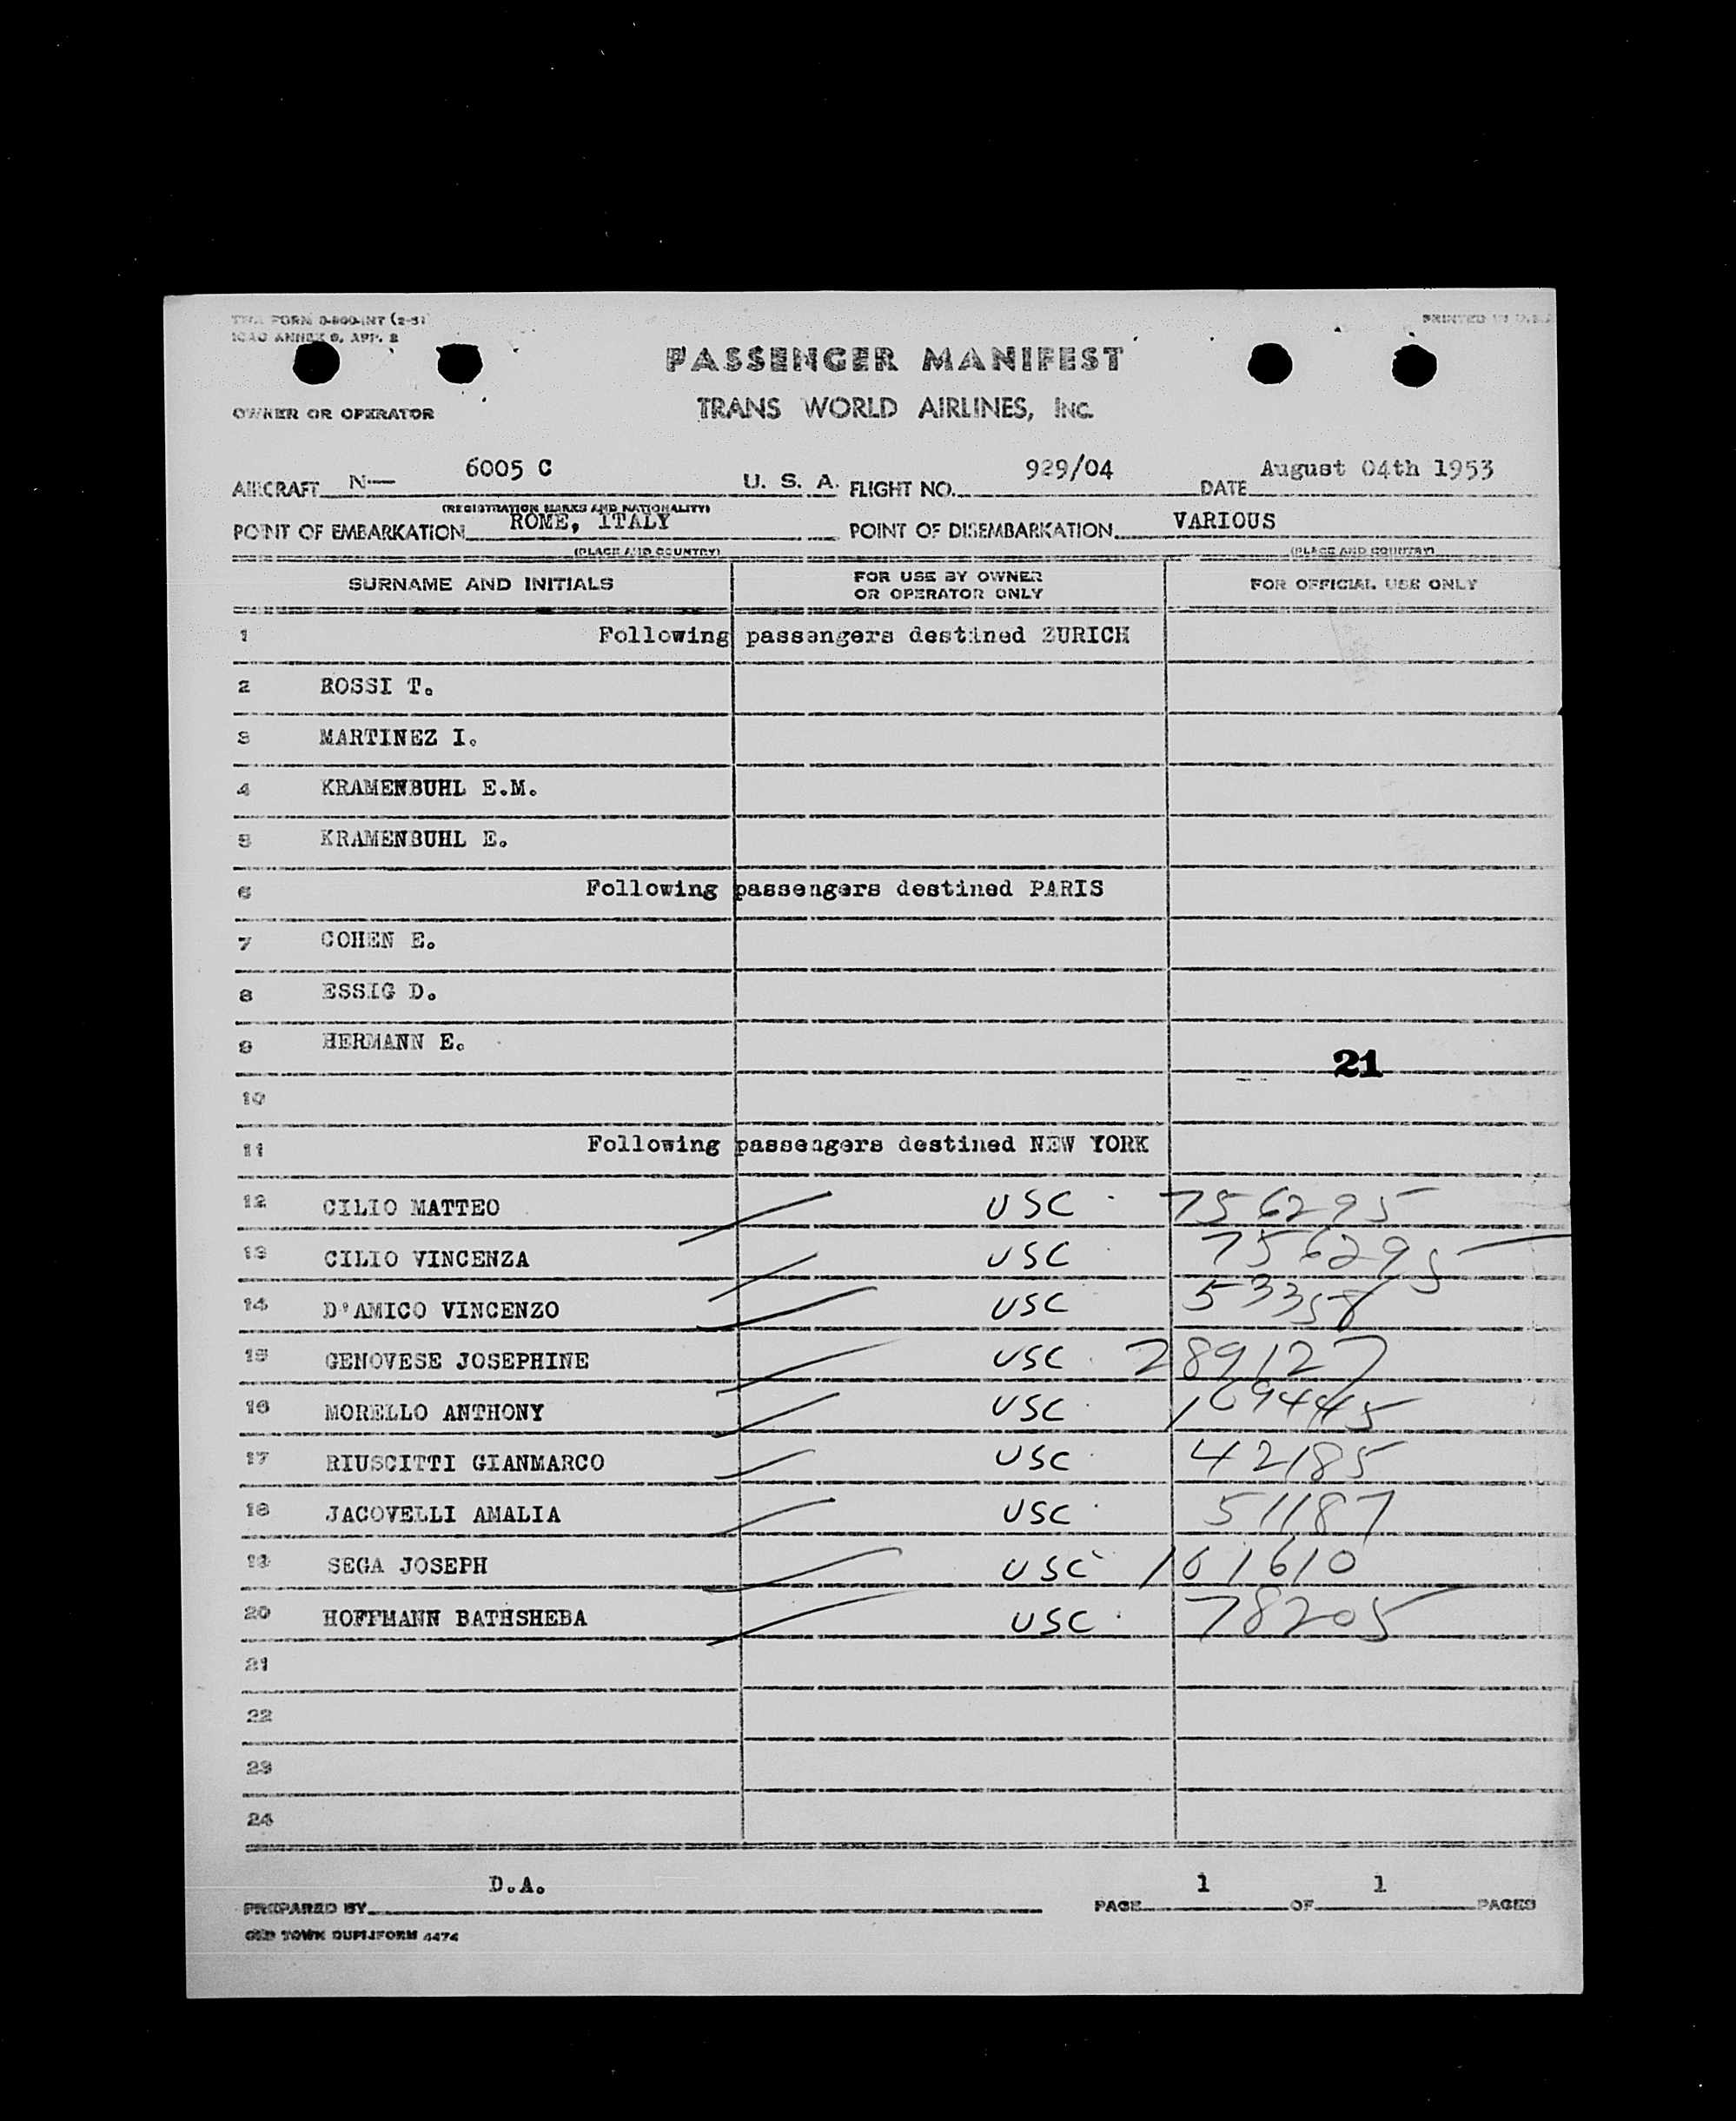 TWA FORM 0-800-INT (2-51
ICAO ANNEX 9, APP. 2
PRINTED IN U.S.A.
PASSENGER MANIFEST
OWNER OR OPERATOR
TRANS WORLD AIRLINES, INC.
AIRCRAFT N— 6005 C U. S. A. FLIGHT NO. 929/04 DATE August 04th 1953
(REGISTRATION MARKS AND NATIONALITY)
POINT OF EMBARKATION ROME, ITALY POINT OF DISEMBARKATION VARIOUS
(PLACE AND COUNTRY) (PLACE AND COUNTRY)
SURNAME AND INITIALS FOR USE BY OWNER OR OPERATOR ONLY FOR OFFICIAL USE ONLY
1 Following passengers destined ZURICH
2 ROSSI T.
3 MARTINEZ I.
4 KRAMENBUHL E.M.
5 KRAMENBUHL E.
6 Following passengers destined PARIS
7 COHEN E.
8 ESSIG D.
9 HERMANN E.
21
10
11 Following passengers destined NEW YORK
12 CILIO MATTEO USC 756295
13 CILIO VINCENZA USC 756295
14 D'AMICO VINCENZO USC 53358
15 GENOVESE JOSEPHINE USC 289127
16 MORELLO ANTHONY USC 169445
17 RIUSCITTI GIANMARCO USC 42185
18 JACOVELLI AMALIA USC 51187
19 SEGA JOSEPH USC 161610
20 HOFFMANN BATHSHEBA USC 78205
21
22
23
24
PREPARED BY D.A. PAGE 1 OF 1 PAGES
OLD TOWN DUPLIFORM 4474